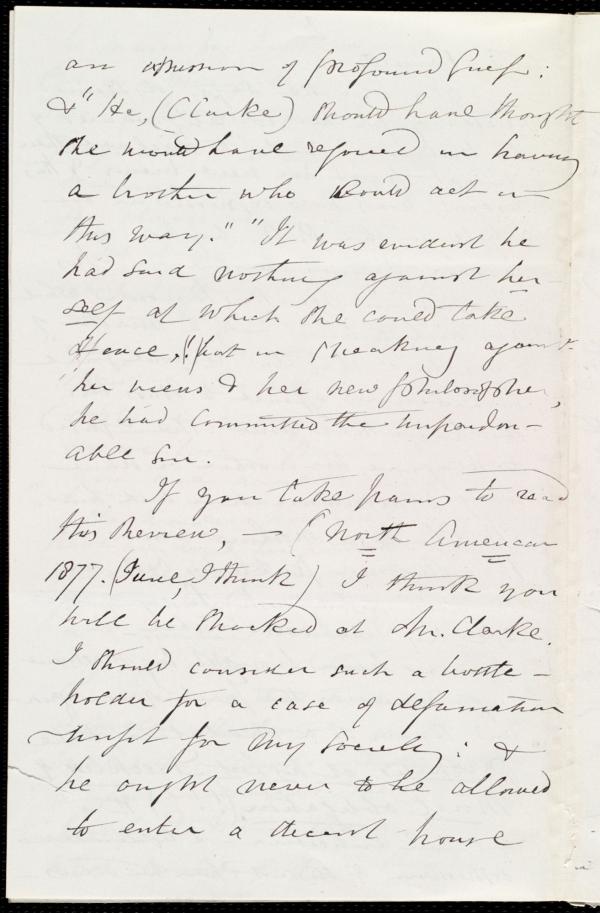 an expression of profound grief:
& "He, (Clarke) should have thought
she would have rejoiced in having
a brother who could act in
this way." "It was evident he
had said nothing against her-
self at which she could take
offence, but in speaking against
her views & her new philosopher,
he had committed the unpardon-
able sin.
If you take pains to read
this Review, — (North American
1877. (June, I think) I think you
will be shocked at Mr. Clarke.
I should consider such a bottle-
holder for a case of defamation
unfit for my society; &
he ought never to be allowed
to enter a decent house